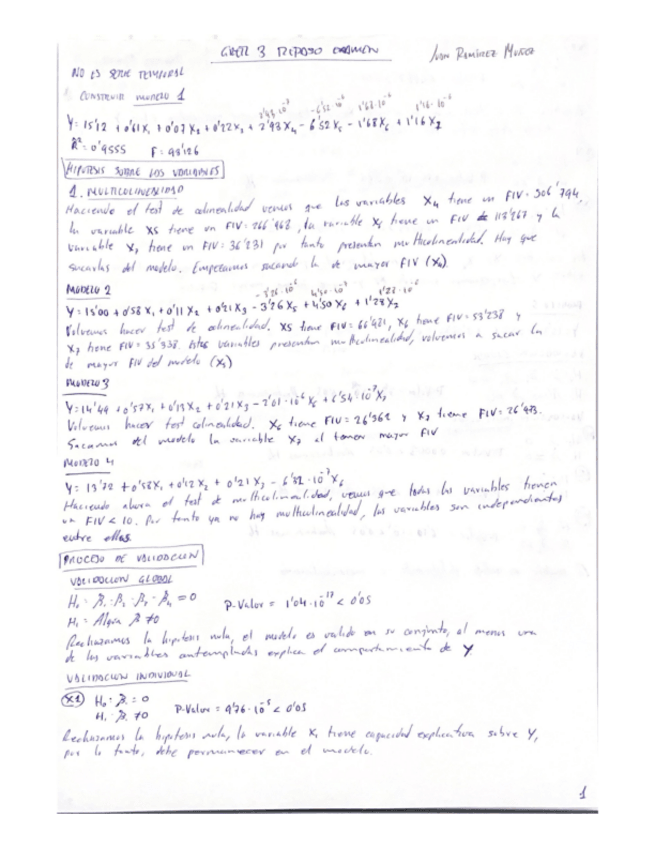 GRETL 3 REPASO EXAMEN JUAN RAMÍREZ MUÑOZ
NO ES SERIE TEMPORAL
CONSTRUIR MODELO 1
Y = 15'12 + 0'61X₁ + 0'07X₂ + 0'22X₃ + 2'93X₄ - 6'52X₅ - 1'68X₆ + 1'16X₇
R² = 0'9555 F = 98'126
HIPÓTESIS SOBRE LAS VARIABLES
1. MULTICOLINEALIDAD
Haciendo el test de colinealidad vemos que las variables X₄ tiene un FIV = 306'794,
la variable X5 tiene un FIV = 266'968, la variable X₆ tiene un FIV de 118'267 y la
variable X₇ tiene un FIV = 36'231 por tanto presentan multicolinealidad. Hay que
sacarlas del modelo. Empezamos sacando la de mayor FIV (X₄)
MODELO 2
Y = 15'00 + 0'58X₁ + 0'11X₂ + 0'21X₃ - 3'76X₅ + 4'50X₆ + 1'28X₇
Volvemos hacer test de colinealidad. X5 tiene FIV = 66'421, X₆ tiene FIV = 53'238 y
X₇ tiene FIV = 35'338. Estas variables presentan multicolinealidad, volvemos a sacar la
de mayor FIV del modelo (X₅)
MODELO 3
Y = 14'49 + 0'57X₁ + 0'13X₂ + 0'21X₃ - 2'01·10⁻⁶X₆ + 6'54·10⁻⁷X₇
Volvemos hacer test colinealidad. X₆ tiene FIV = 26'362 y X₇ tiene FIV = 26'493.
Sacamos del modelo la variable X₇ al tener mayor FIV
MODELO 4
Y = 13'72 + 0'58X₁ + 0'12X₂ + 0'21X₃ - 6'82·10⁻⁷X₆
Haciendo ahora el test de multicolinealidad, vemos que todas las variables tienen
un FIV < 10. Por tanto ya no hay multicolinealidad, las variables son independientes
entre ellas.
PROCESO DE VALIDACIÓN
VALIDACION GLOBAL
H₀ = β₁ = β₂ = β₃ = β₄ = 0
P-Valor = 1'04·10⁻¹⁷ < 0'05
H₁ = Algún β ≠ 0
Rechazamos la hipótesis nula, el modelo es valido en su conjunto, al menos una
de las variables contempladas explica el comportamiento de Y
VALIDACION INDIVIDUAL
X1 H₀: β₁ = 0
P-Valor = 9'76·10⁻⁵ < 0'05
H₁: β₁ ≠ 0
Rechazamos la hipótesis nula, la variable X₁ tiene capacidad explicativa sobre Y,
por lo tanto, debe permanecer en el modelo.
1